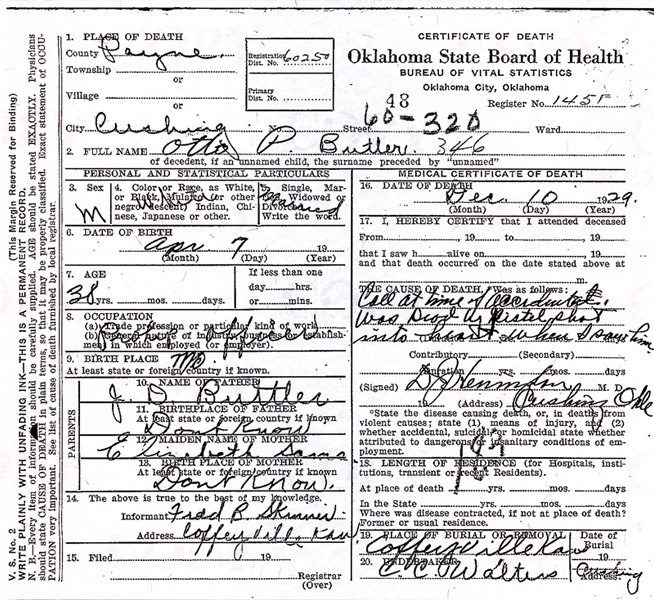 V. S. No. 2
(This Margin Reserved for Binding)
WRITE PLAINLY WITH UNFADING INK—THIS IS A PERMANENT RECORD.
N. B.—Every item of information should be carefully supplied. AGE should be stated EXACTLY. Physicians
should state CAUSE OF DEATH in plain terms, so that it may be properly classified. Exact statement of OCCU-
PATION very important. See list of cause of death furnished by local registrar.
1. PLACE OF DEATH
County Payne
Township
or
Village
or
City Cushing
Registration
Dist. No. 60250
Primary
Dist. No.
CERTIFICATE OF DEATH
Oklahoma State Board of Health
BUREAU OF VITAL STATISTICS
Oklahoma City, Oklahoma
48
Register No. 1451
No. Street 60-320 Ward
2. FULL NAME Otto P. Butler 346
of decedent, if an unnamed child, the surname preceded by "unnamed"
PERSONAL AND STATISTICAL PARTICULARS
3. Sex
M
4. Color or Race, as White,
or Black, Mulatto (or other
negro descent) Indian, Chi-
nese, Japanese or other.
5. Single, Mar-
ried, Widowed or
Divorced
Write the word.
6. DATE OF BIRTH
Apr 7 19
(Month) (Day) (Year)
7. AGE
38 yrs. mos. days.
If less than one
day hrs.
or mins.
8. OCCUPATION
(a) Trade profession or particular kind of work
(b) General nature of industry business or establish-
ment in which employed (or employer).
9. BIRTH PLACE Mo
At least state or foreign country if known.
PARENTS
10. NAME OF FATHER
J. D. Buttler
11. BIRTHPLACE OF FATHER
At least state or foreign country if known
Dont Know
12. MAIDEN NAME OF MOTHER
Elizabeth
13. BIRTH PLACE OF MOTHER
At least state or foreign country if known
Dont Know.
14. The above is true to the best of my knowledge.
Informant Fred B. Skinner
Address Coffeyville Kan
15. Filed 19
Registrar
(Over)
MEDICAL CERTIFICATE OF DEATH
16. DATE OF DEATH
Dec. 10 1929.
(Month) (Day) (Year)
17. I, HEREBY CERTIFY that I attended deceased
From , 19 to , 19
that I saw h alive on , 19
and that death occurred on the date stated above at
m.
THE CAUSE OF DEATH, Was as follows:
Call at time of accident
was Dead Pistol shot
into heart when I saw him
Contributory (Secondary)
Duration yrs. mos. days
(Signed) M. D.
19 (Address) Cushing Okla
*State the disease causing death, or, in deaths from
violent causes; state (1) means of injury, and (2)
whether accidental, suicidal or homicidal state whether
attributed to dangerous or insanitary conditions of em-
ployment.
18. LENGTH OF RESIDENCE (for Hospitals, insti-
tutions, transient or recent Residents).
At place of death yrs. mos. days
In the State yrs. mos. days
Where was disease contracted, if not at place of death?
Former or usual residence.
19. PLACE OF BURIAL OR REMOVAL
Coffeyville Kan
Date of
Burial
19
20. UNDERTAKER
C. C. Walters
Cushing
Address.